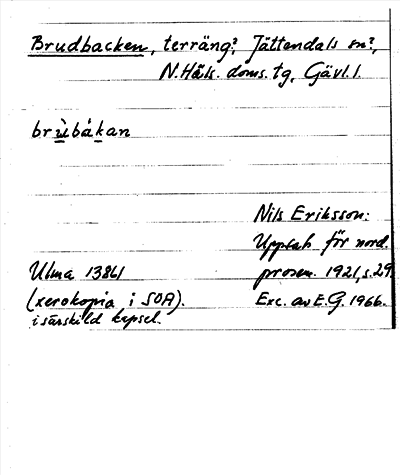 Brudbacken, terräng?, Jättendals sn?,
N. Häls. doms. tg, Gävl. l.
brùbákan
Nils Eriksson:
Uppsats för nord.
Ulma 13861
prosem. 1921, s. 29
(xerokopia i SOA).
Exc. av E.G. 1966.
i särskild kapsel.